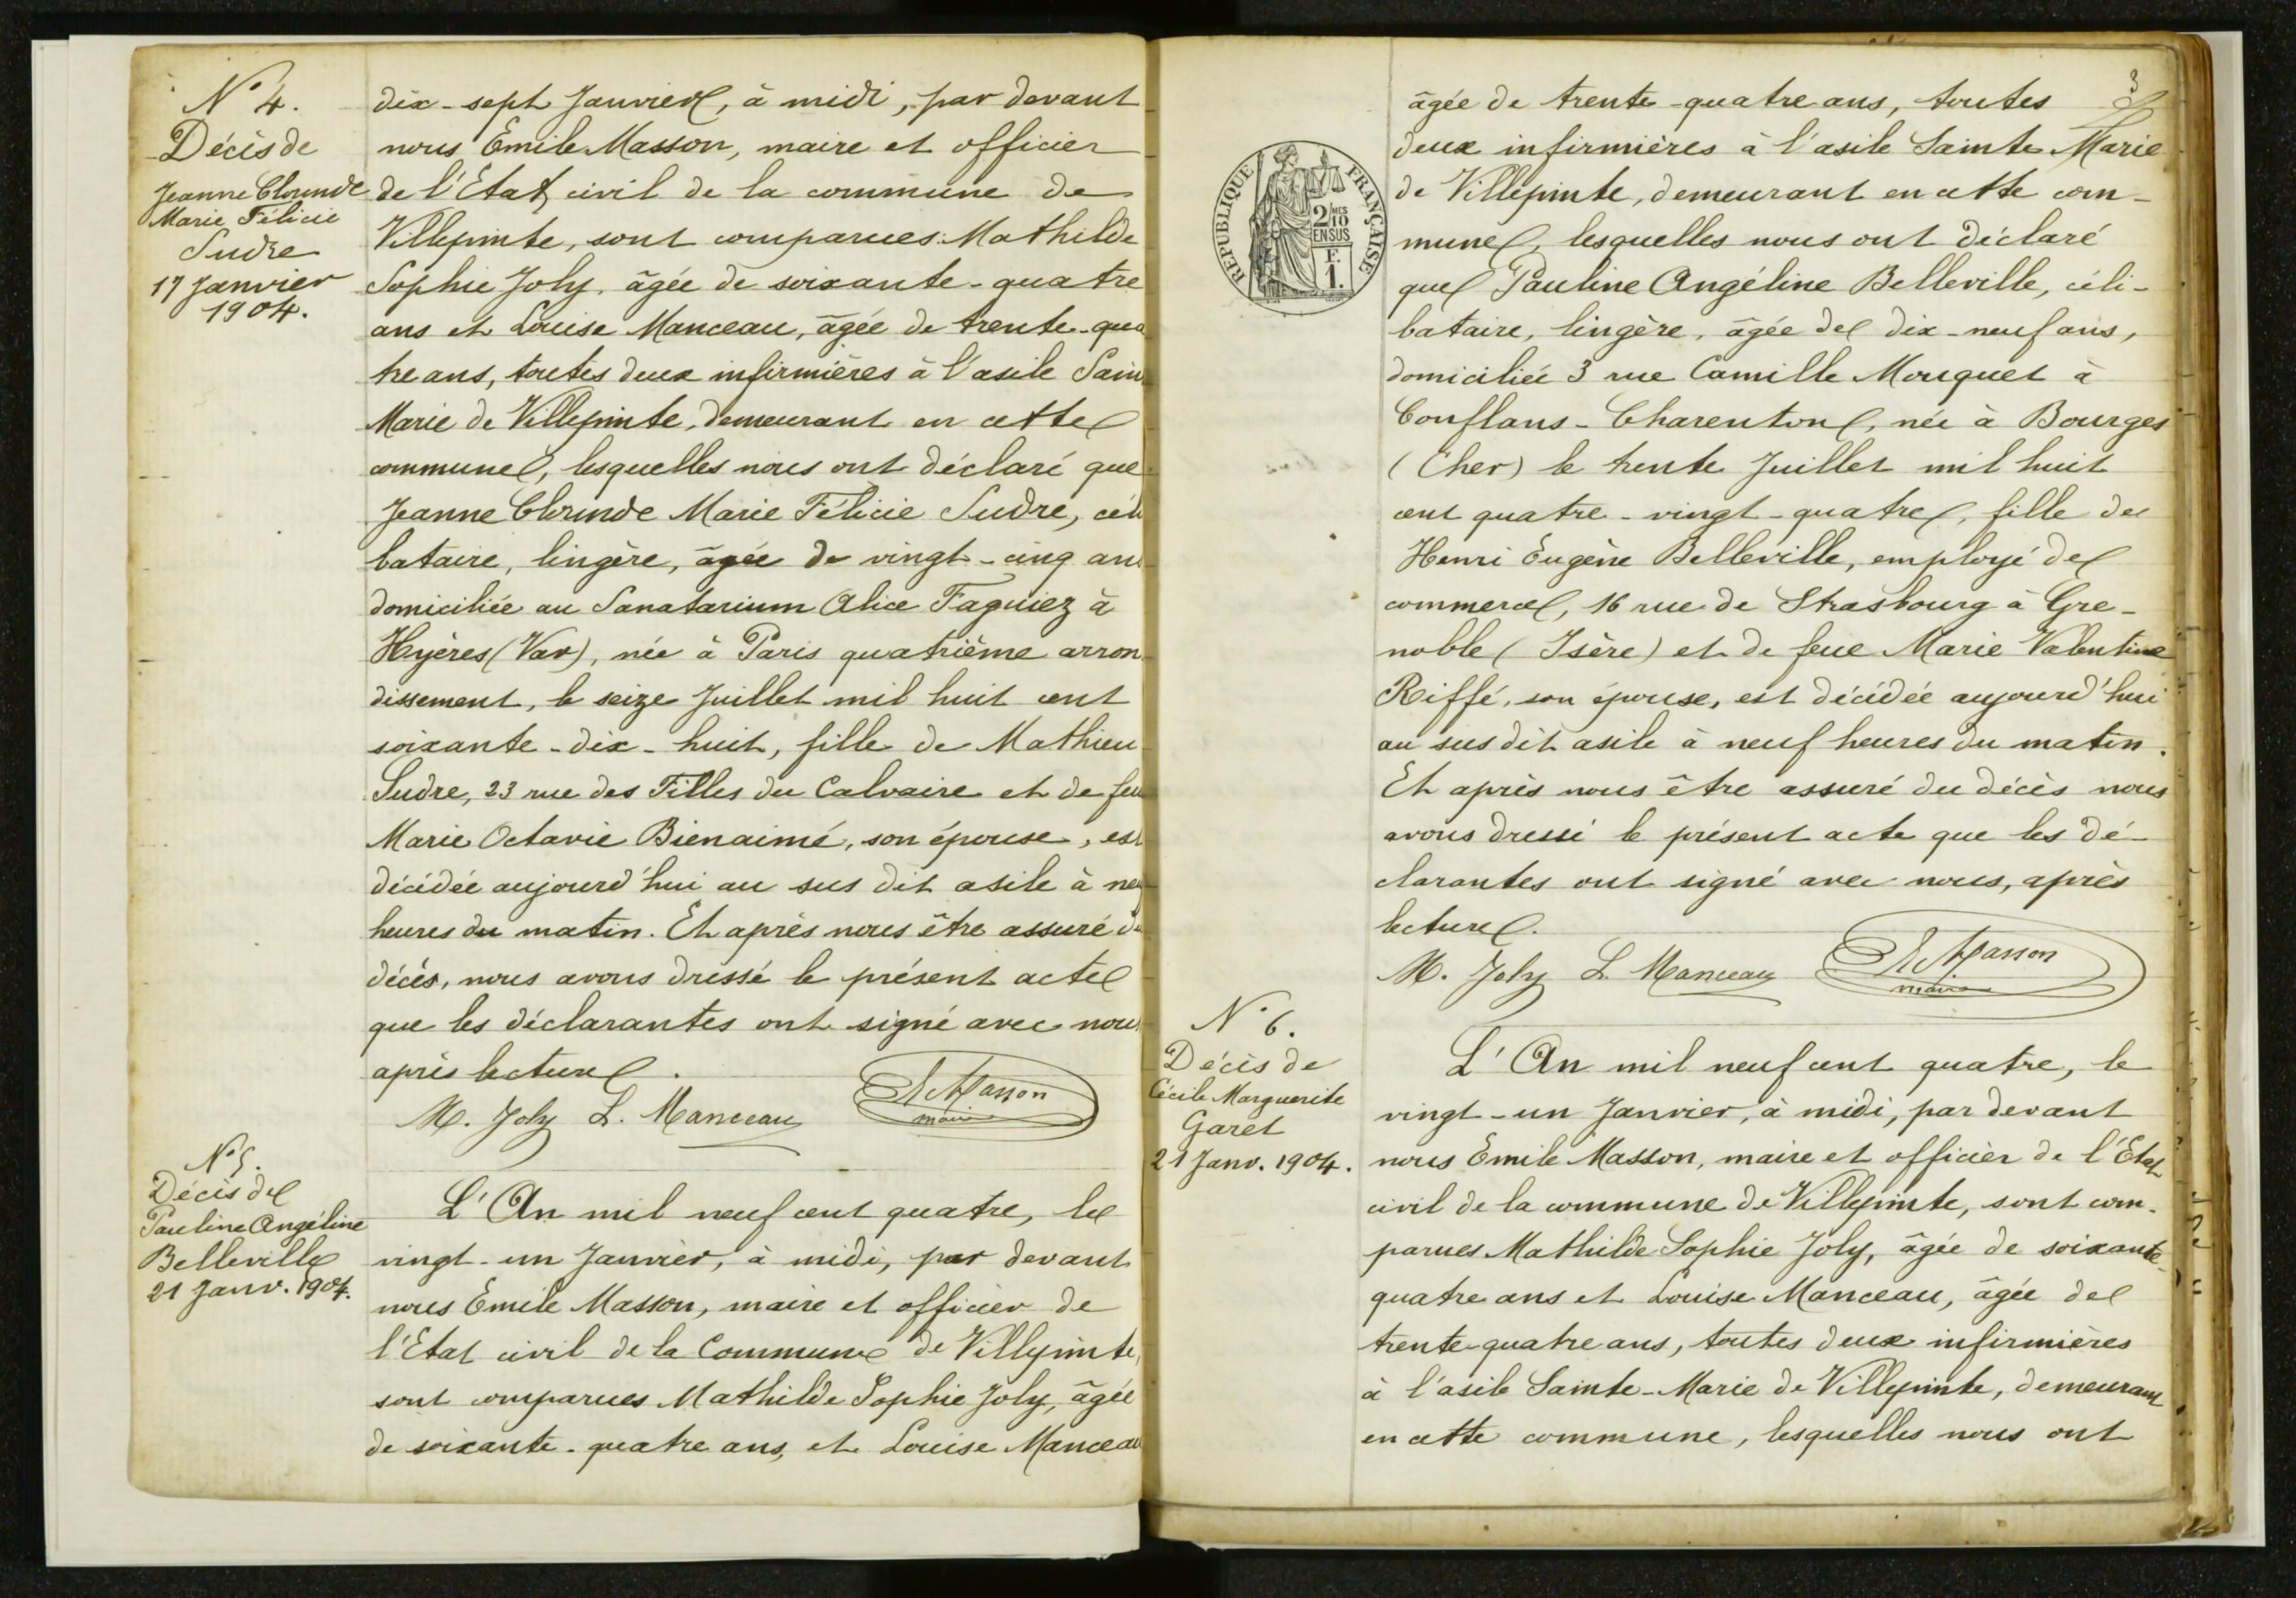 N° 4.
Décès de
Jeanne Clorinde
Marie Félicie
Sudre
17 Janvier
1904.
dix-sept Janvier, à midi, par devant
nous Emile Masson, maire et officier
de l'Etat civil de la commune de
Villepinte, sont comparues: Mathilde
Sophie Joly, âgée de soixante-quatre
ans et Louise Manceau, âgée de trente-qua
tre ans, toutes deux infirmières à l'asile Sain
Marie de Villepinte, demeurant en cette
commune, lesquelles nous ont déclaré que
Jeanne Clorinde Marie Félicie Sudre, céli
bataire, lingère, âgée de vingt-cinq ans
domiciliée au Sanatarium Alice Faguiez à
Hyères (Var), née à Paris quatrième arron
dissement, le seize Juillet mil huit cent
soixante-dix-huit, fille de Mathieu
Sudre, 23 rue des Filles du Calvaire et de feu
Marie Octavie Bienaimé, son épouse, est
décédée aujourd'hui au sus dit asile à neuf
heures du matin. Et après nous être assuré du
décès, nous avons dressé le présent acte
que les déclarantes ont signé avec nous
après lecture.
M. Joly L. Manceau E Masson
maire
N° 5.
Décès de
Pauline Angéline
Belleville
21 Janv. 1904.
L'An mil neuf cent quatre, le
vingt-un Janvier, à midi, par devant
nous Emile Masson, maire et officier de
l'Etat civil de la Commune de Villepinte,
sont comparues Mathilde Sophie Joly, âgée
de soixante-quatre ans, et Louise Manceau
3
âgée de trente-quatre ans, toutes
deux infirmières à l'asile Sainte Marie
de Villepinte, demeurant en cette com-
mune, lesquelles nous ont déclaré
que Pauline Angéline Belleville, céli-
bataire, lingère, âgée de dix-neuf ans,
domiciliée 3 rue Camille Mouquet à
Conflans-Charenton, née à Bourges
(Cher) le trente Juillet mil huit
cent quatre-vingt-quatre, fille de
Henri Eugène Belleville, employé de
commerce, 16 rue de Strasbourg à Gre-
noble (Isère) et de feue Marie Valentine
Riffé, son épouse, est décédée aujourd'hui
au sus dit asile à neuf heures du matin.
Et après nous être assuré du décès nous
avons dressé le présent acte que les dé-
clarantes ont signé avec nous, après
lecture.
M. Joly L. Manceau E Masson
maire
RÉPUBLIQUE FRANÇAISE
2/10 MES
EN SUS
F.
1.
N° 6.
Décès de
Cécile Marguerite
Garet
21 Janv. 1904.
L'An mil neuf cent quatre, le
vingt-un Janvier, à midi, par devant
nous Emile Masson, maire et officier de l'Etat
civil de la commune de Villepinte, sont com-
parues Mathilde Sophie Joly, âgée de soixante-
quatre ans et Louise Manceau, âgée de
trente-quatre ans, toutes deux infirmières
à l'asile Sainte-Marie de Villepinte, demeurant
en cette commune, lesquelles nous ont